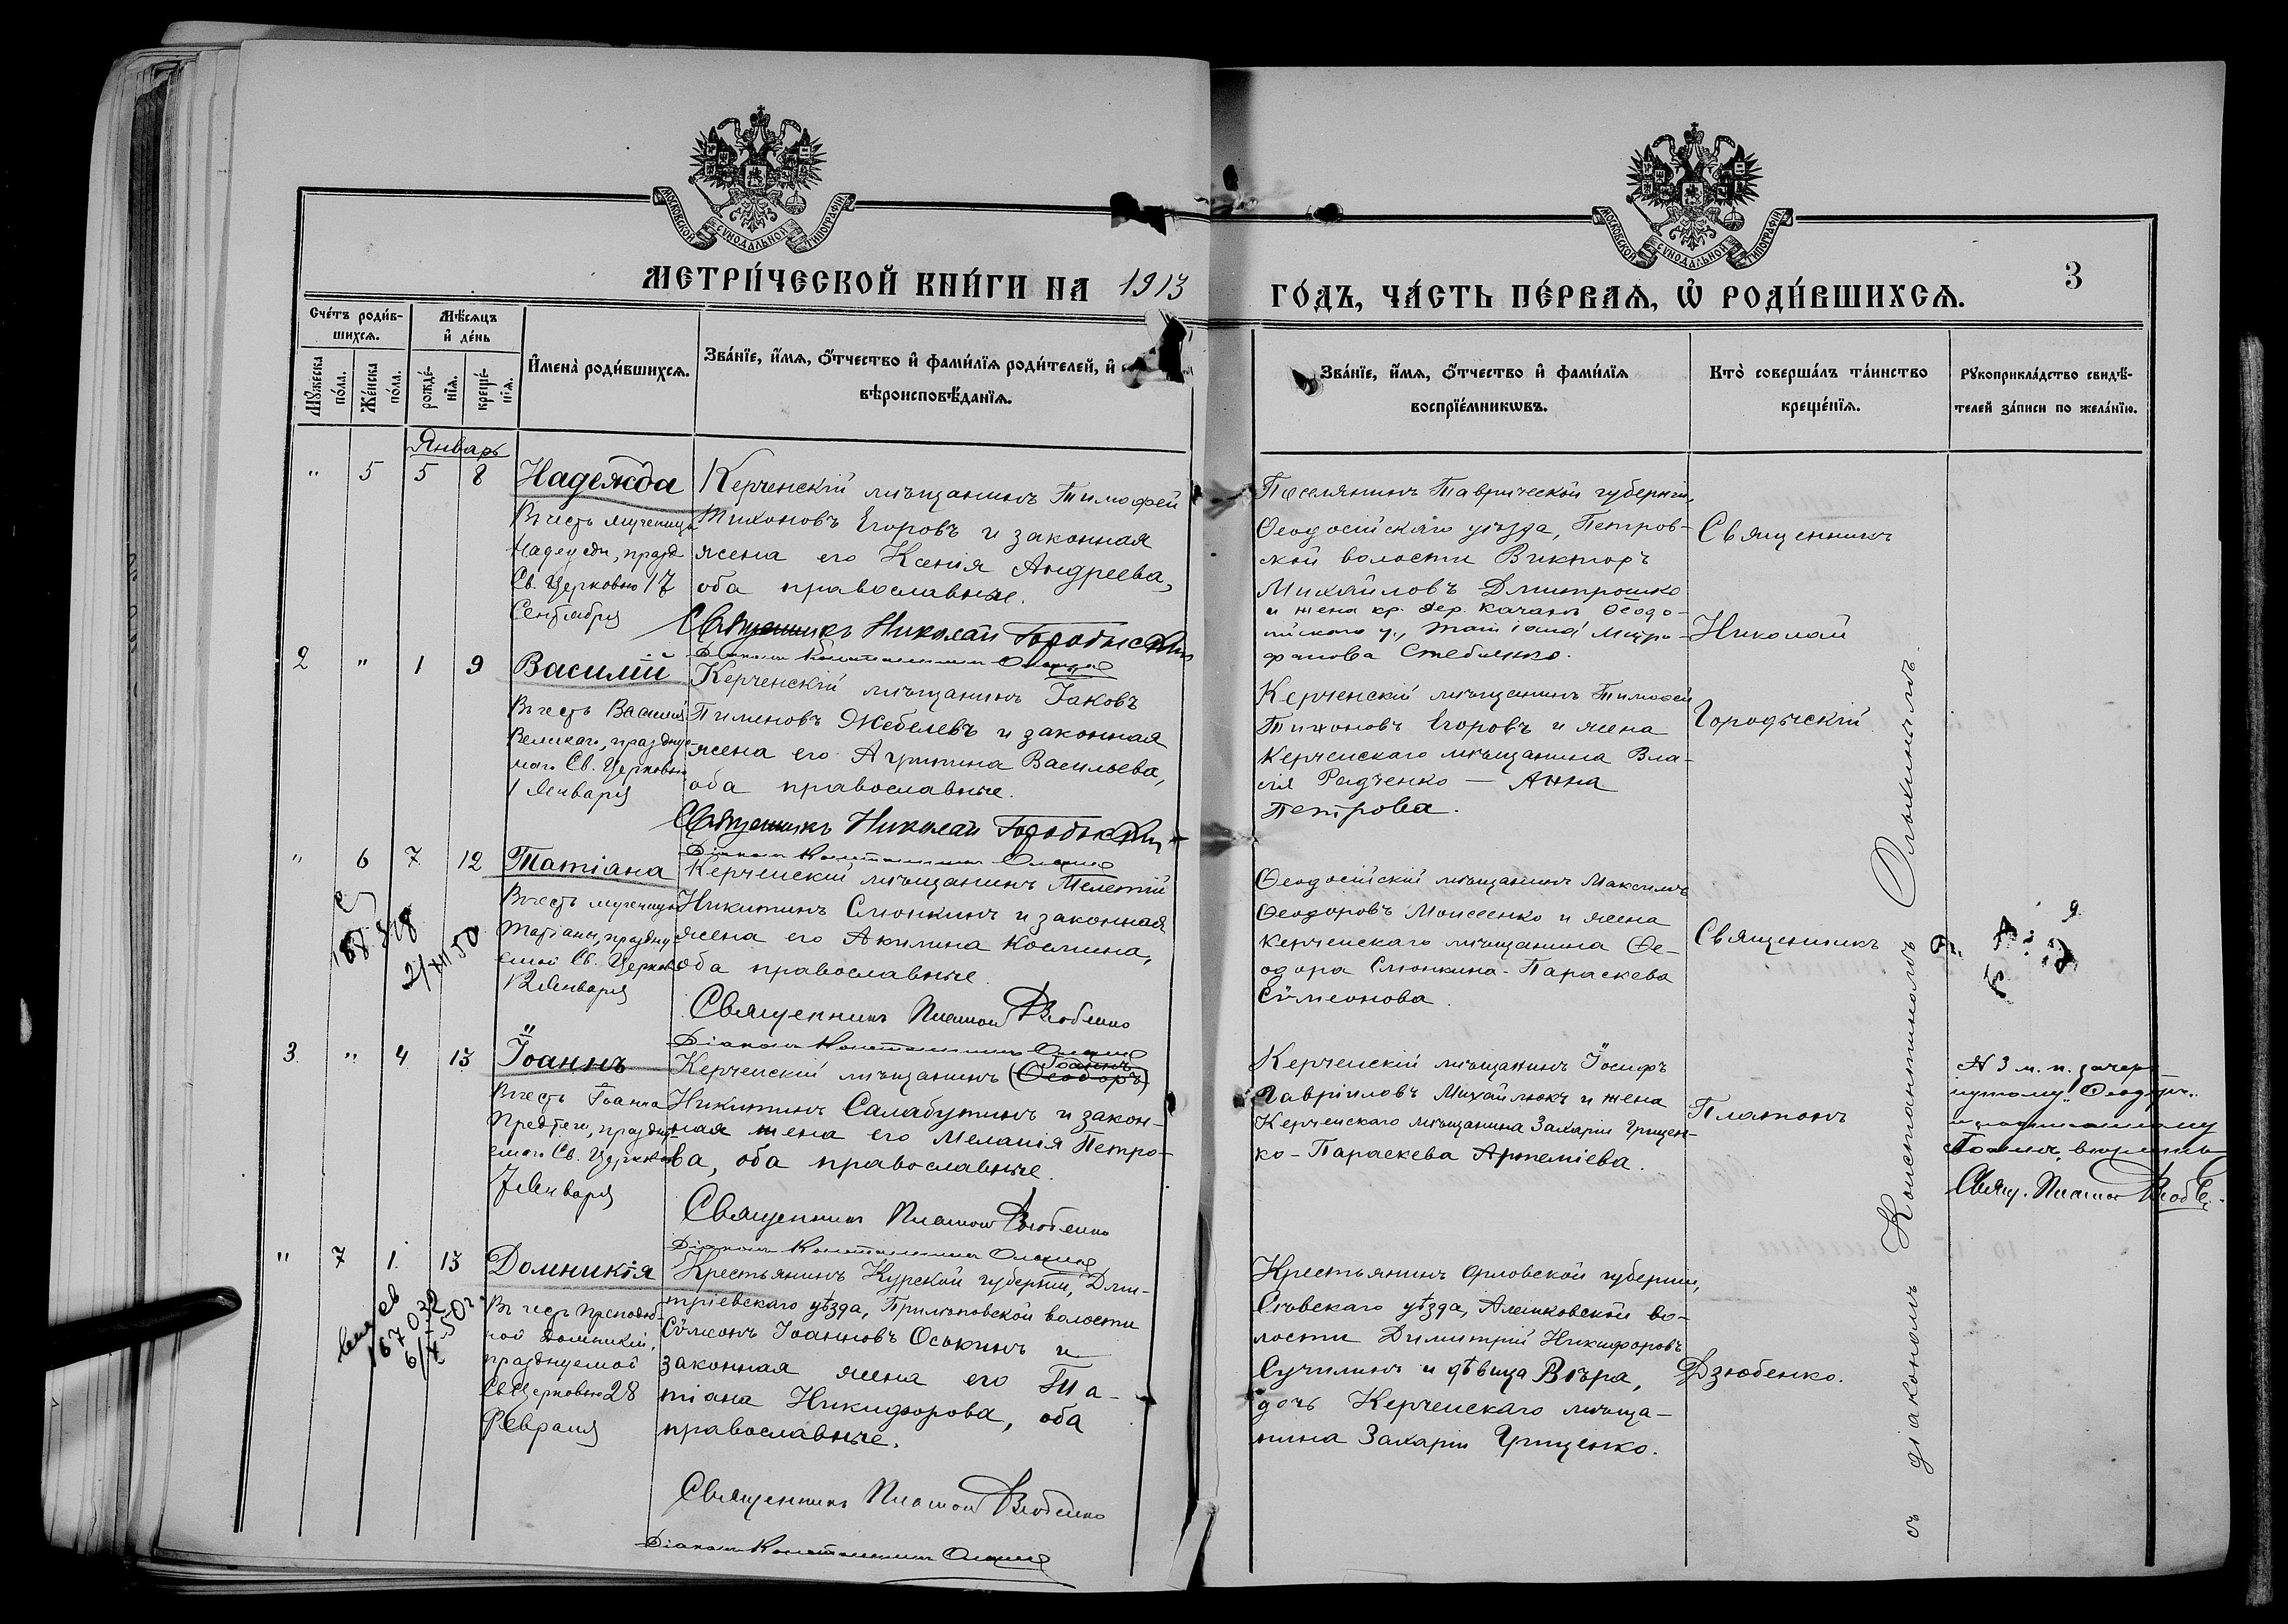 МОСКОВСКОЙ СУНОДАЛЬНОЙ ТИПОГРАФІИ
МОСКОВСКОЙ СУНОДАЛЬНОЙ ТИПОГРАФІИ
МЕТРИ́ЧЕСКОЙ КНИ́ГИ НА 1913
ГО́ДЪ, ЧА́СТЬ ПЕ́РВАѦ, Ѡ҆ РОДИ́ВШИХСѦ.
3
Сче́тъ роди́в-
шихсѧ.
Мѣ́сѧцъ
и҆ де́нь
Мꙋ́жеска
по́ла.
Же́нска
по́ла.
рожде́-
нїѧ.
креще́-
нїѧ.
И҆мена̀ роди́вшихсѧ.
Зва́нїе, и҆́мѧ, ѻ҆́тчество и҆ фами́лїѧ роди́телей, и҆
вѣроисповѣ́данїѧ.
Зва́нїе, и҆́мѧ, ѻ҆́тчество и҆ фами́лїѧ
воспрїе́мникѡвъ.
Кто̀ соверша́лъ та́инство
креще́нїѧ.
Рꙋкоприкла́дство свидѣ́-
телей за́писи по жела́нїю.
Январь
" 5 5 8
Надежда
Въ честь мученицы
Надежды, празд.
Св. Церковью 17
Сентября
Керченскій мѣщанинъ Тимофей
Тихоновъ Егоровъ и законная
жена его Ксенія Андреева,
оба православные.
Священникъ Николай Городыскій
Діаконъ Константинъ
Поселянинъ Таврической губерніи,
Ѳеодосійскаго уѣзда, Петров-
ской волости Викторъ
Михайловъ Дмитрошко
и жена кр. дер. Качанъ Ѳеодо-
сійскаго у., Татіана Митро-
фанова Стебленко.
Священникъ
Николай
Городыскій
2 " 1 9
Василій
Въ честь Василія
Великаго, праздну-
маго Св. Церковью
1 Января
Керченскій мѣщанинъ Іаковъ
Пименовъ Жебелевъ и законная
жена его Агрипина Васильева,
оба православные.
Священникъ Николай Городыскій
Діаконъ Константинъ
Керченскій мѣщанинъ Тимофей
Тихоновъ Егоровъ и жена
Керченскаго мѣщанина Вла-
сія Радченко — Анна
Петрова.
" 6 7 12
Татіана
Въ честь мученицы
Татіаны, праздну
емой Св. Церковью
12 Января
2/XII 50
Керченскій мѣщанинъ Мелетій
Никитинъ Слюнкинъ и законная
жена его Акилина Космина,
оба православные.
Священникъ Платонъ Дзюбенко
Діаконъ Константинъ
Ѳеодосійскій мѣщанинъ Максимъ
Ѳеодоровъ Моисеенко и жена
Керченскаго мѣщанина Ѳе-
одора Слюнкина - Параскева
Сѵмеонова.
Священникъ
Платонъ
Дзюбенко.
съ діакономъ Константиномъ
3 " 4 13
Іоаннъ
Въ честь Іоанна
Предтечи, праздну-
емаго Св. Церковью
7 Января
Іоаннъ
Керченскій мѣщанинъ (Ѳеодоръ)
Никитинъ Салабутинъ и закон-
ная жена его Меланія Петро-
ва, оба православные.
Священникъ Платонъ Дзюбенко
Діаконъ Константинъ
Керченскій мѣщанинъ Іосифъ
Гавріиловъ Михайлюкъ и жена
Керченскаго мѣщанина Захаріи Грищен-
ко - Параскева Артеміева.
№ 3 м. п. зачерк-
нутому "Ѳеодоръ"
Іоаннъ вѣрить
Свящ. Платонъ Дзюбе
" 7 1 13
Домникія
Въ честь преподоб-
ной Домникіи,
празднуемой
Св. Церковью 28
Февраля
Крестьянинъ Курской губерніи, Дми-
тріевскаго уѣзда, волости
Сѵмеонъ Іоанновъ Оськинъ и
законная жена его Та-
тіана Никифорова, оба
православные.
Священникъ Платонъ Дзюбенко
Діаконъ Константинъ
Крестьянинъ Орловской губерніи,
Сѣвскаго уѣзда, Алешковской во-
лости Димитрій Никифоровъ
Сучилинъ и дѣвица Вѣра,
дочь Керченскаго мѣща-
нина Захаріи Грищенко.